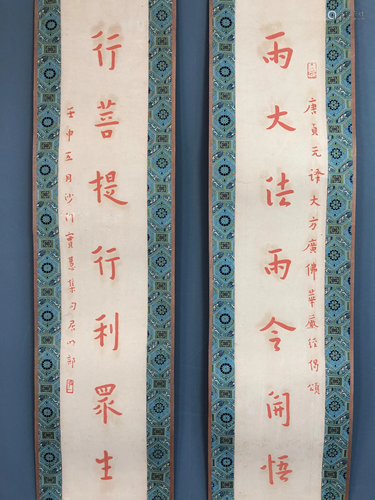 雨大法雨令開悟
唐貞元譯大方廣佛華嚴經偈頌
行菩提行利眾生
壬申五月沙門寶慧集句